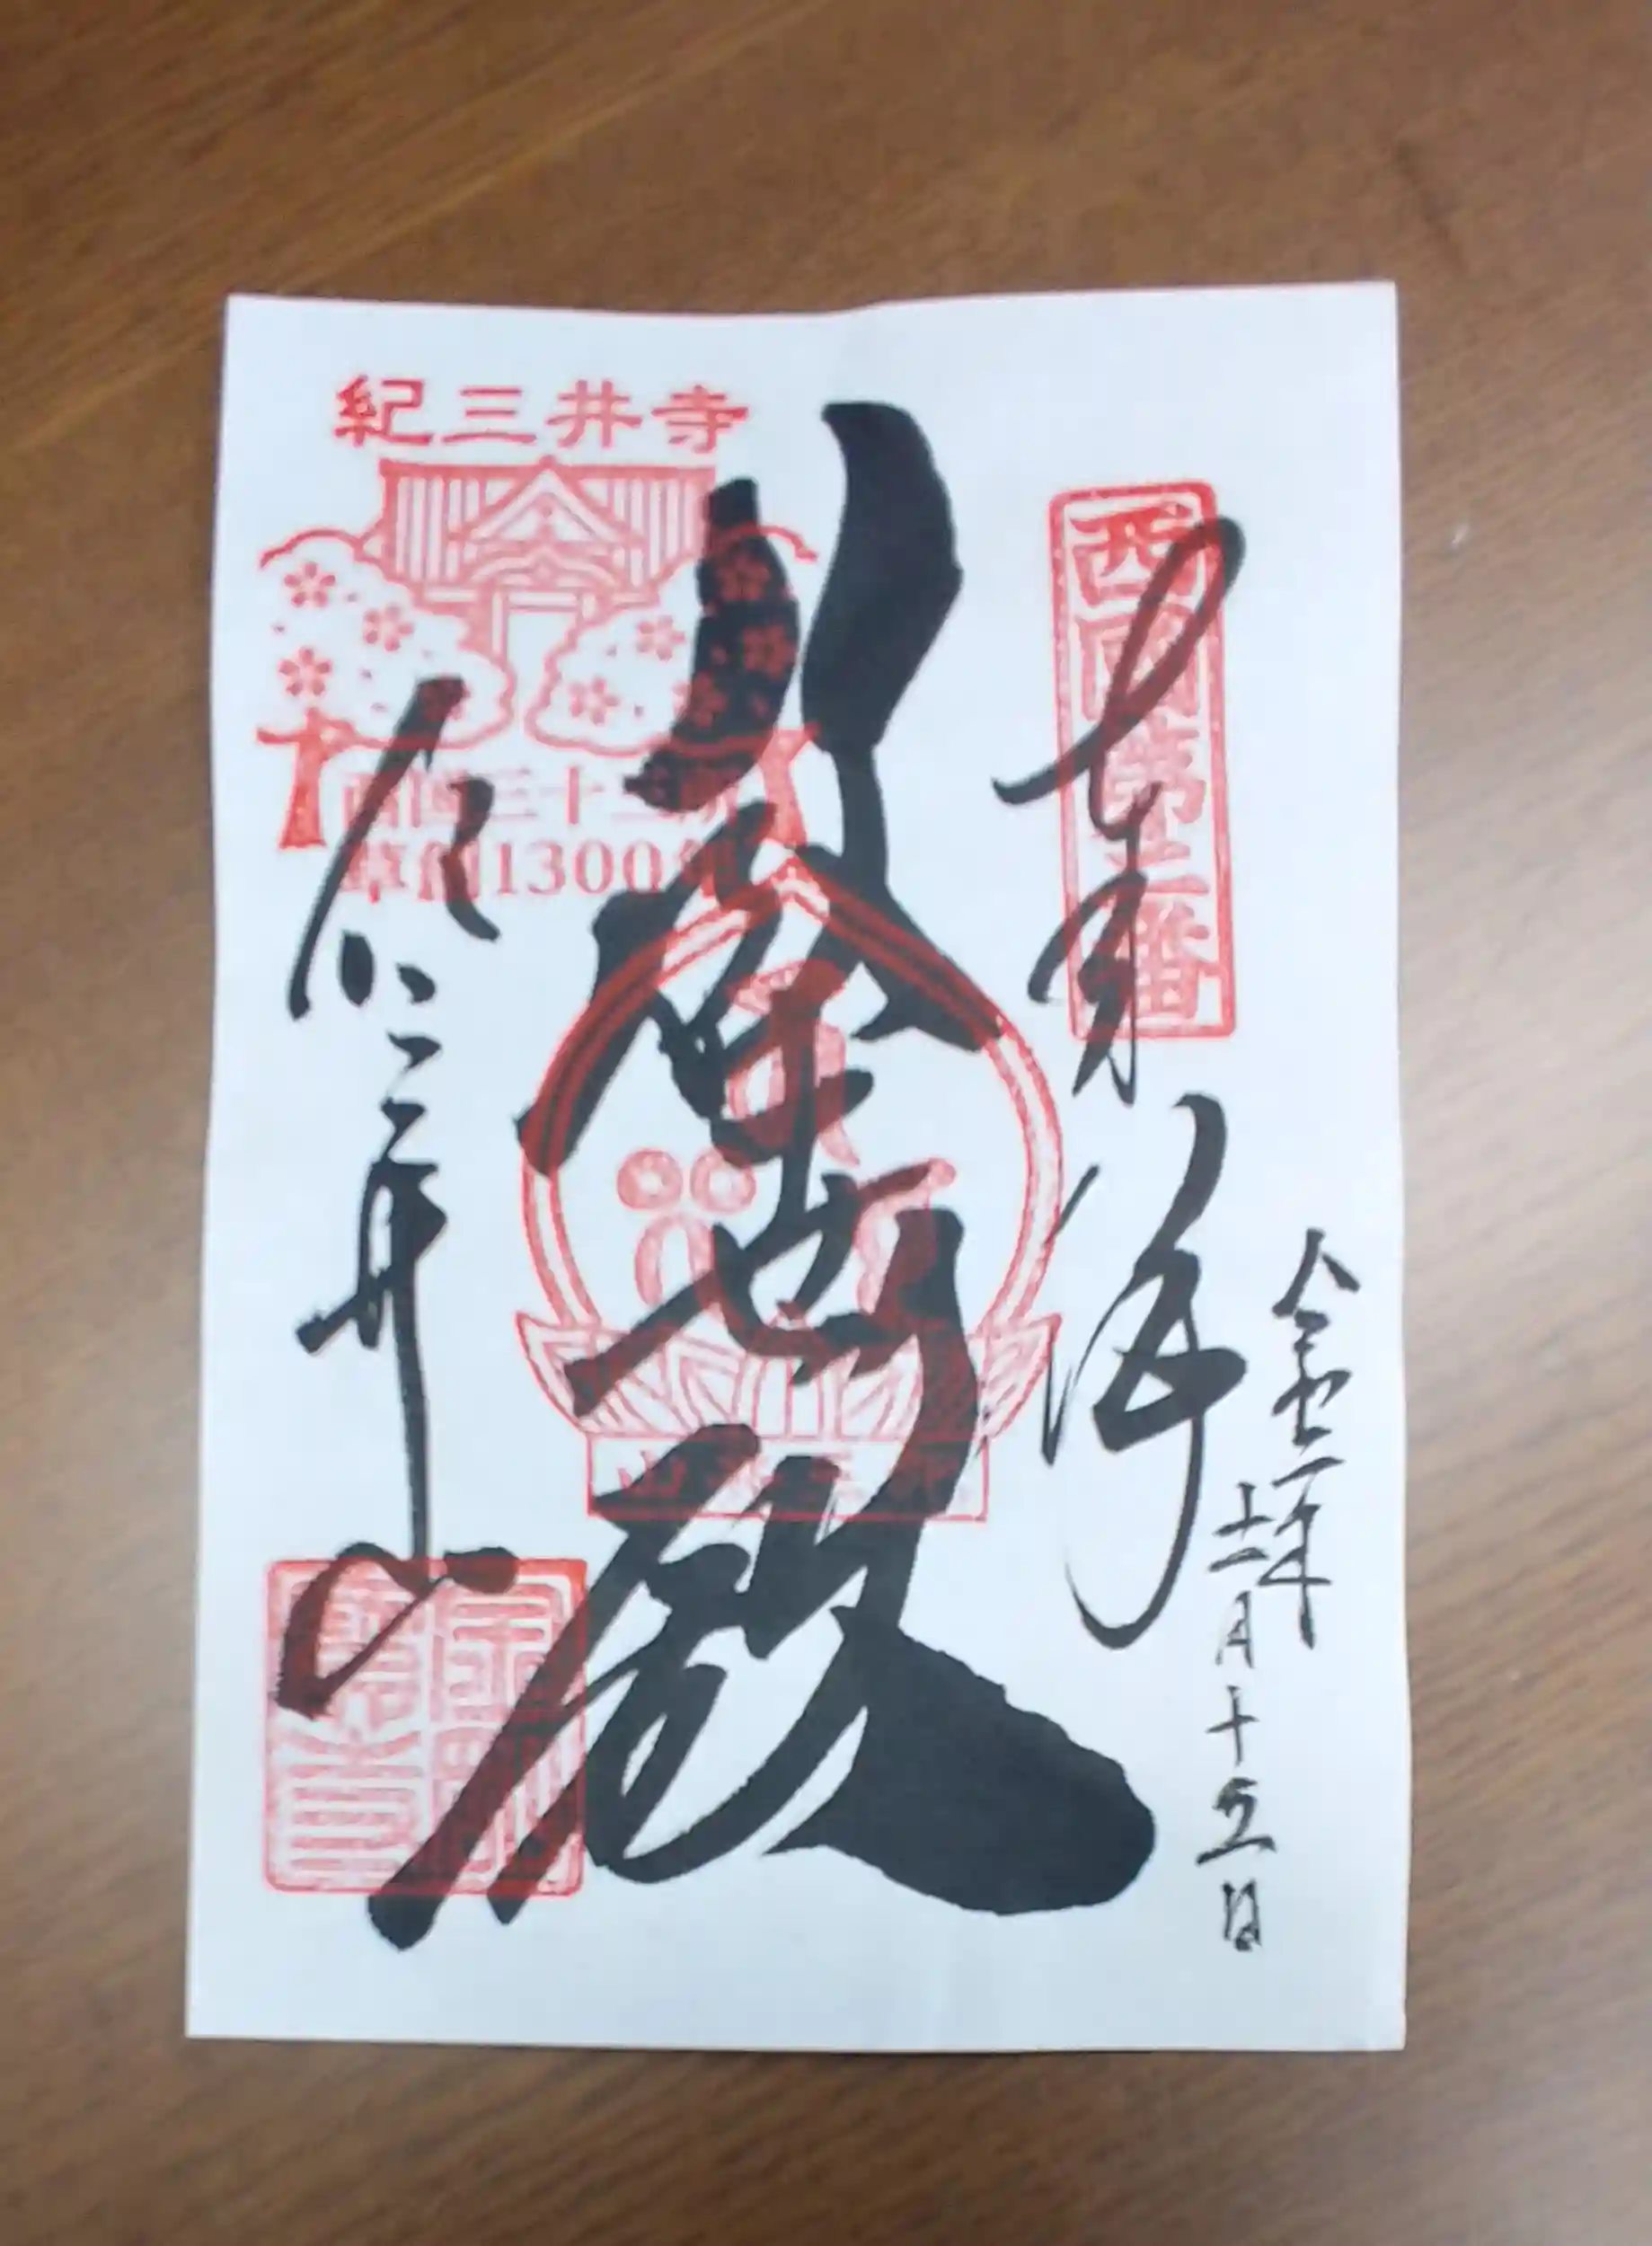 奉拝
西国第二番
令和二年
十二月十五日
救世殿
紀三井寺
西国三十三所
草創1300年
紀三井寺